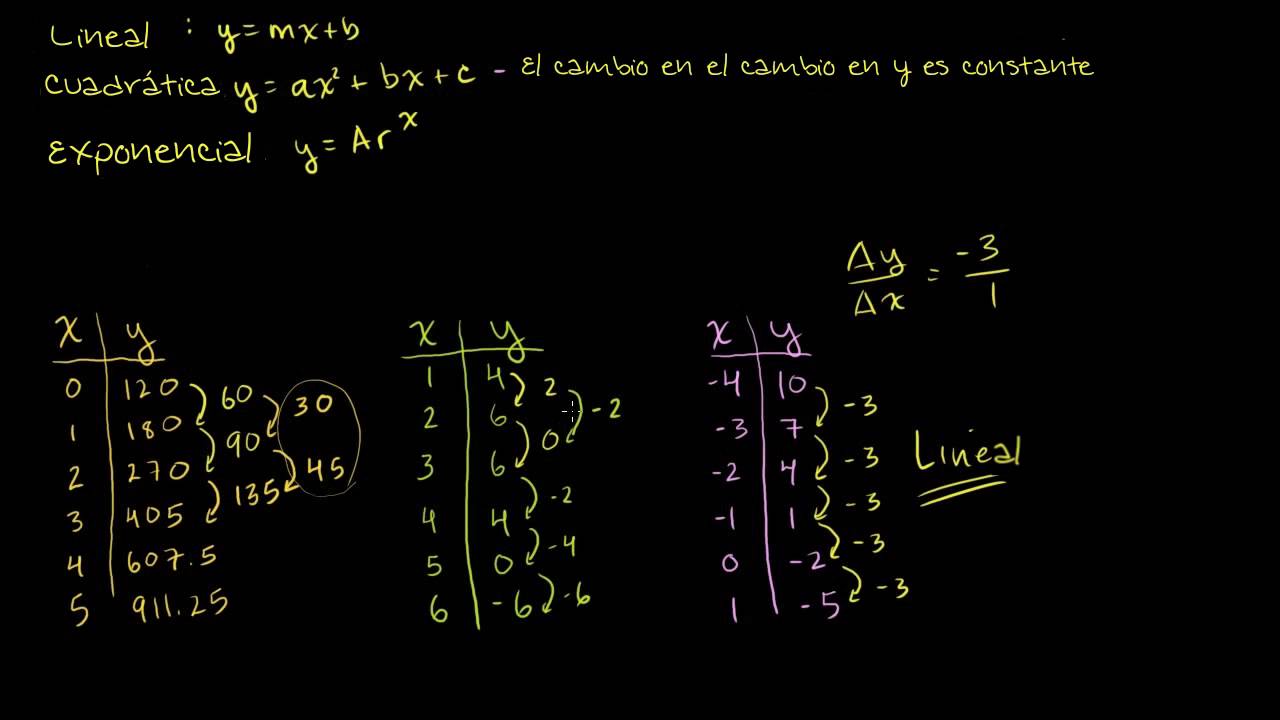 Lineal : y = mx + b
Cuadrática y = ax² + bx + c - El cambio en el cambio en y es constante
Exponencial y = Ar^x
Δy/Δx = -3/1
x y
0 120
1 180
2 270
3 405
4 607.5
5 911.25
60
90
135
30
45
x y
1 4
2 6
3 6
4 4
5 0
6 -6
2
0
-2
-4
-6
-2
x y
-4 10
-3 7
-2 4
-1 1
0 -2
1 -5
-3
-3
-3
-3
-3
Lineal